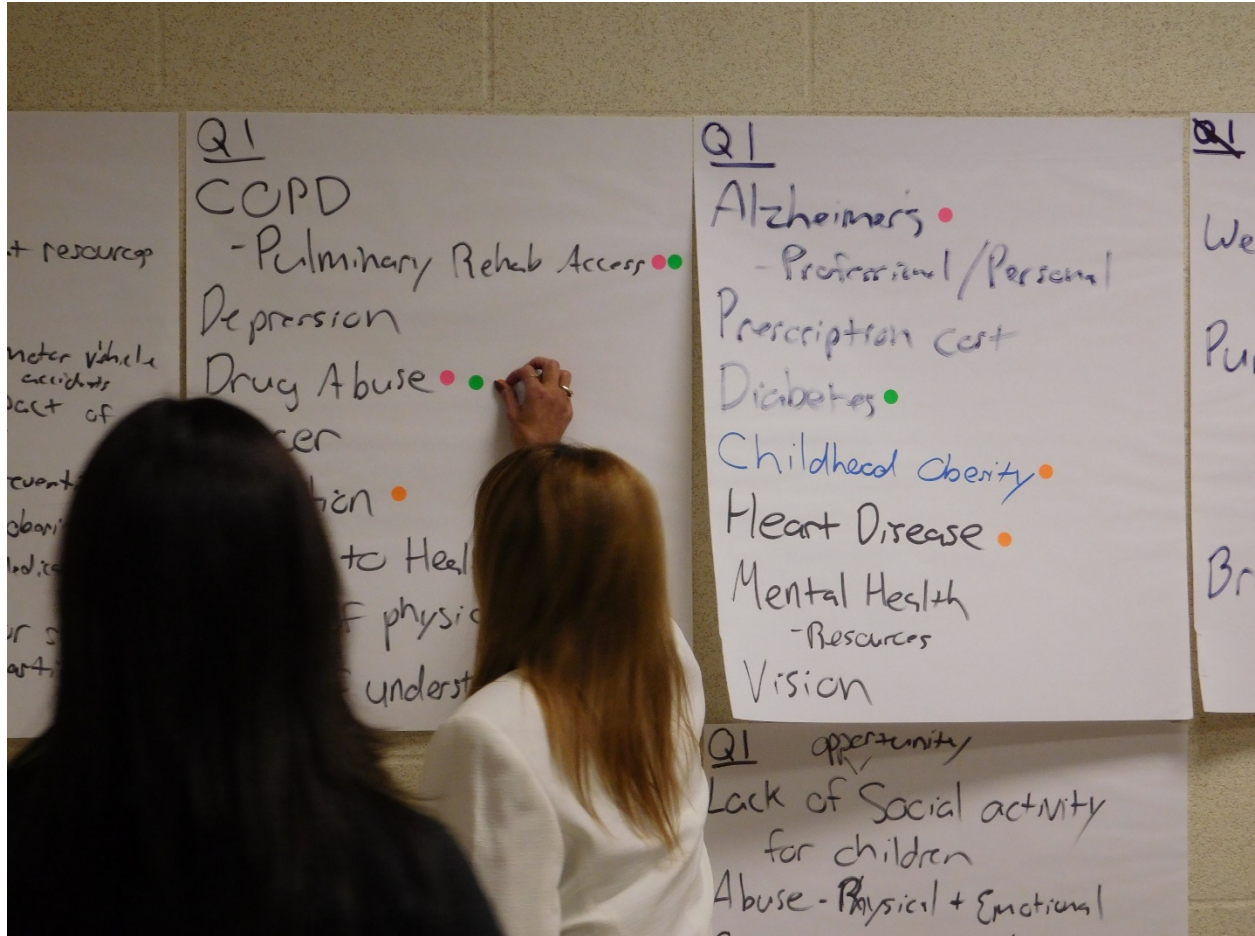 + resources
motor vehicle
accidents
of
Q1
COPD
- Pulminary Rehab Access
Depression
Drug Abuse
to
physic
underst
Q1
Alzheimer's
- Professional/Personal
Prescription cost
Diabetes
Childhood Obesity
Heart Disease
Mental Health
- Resources
Vision
Q1 opportunity
Lack of Social activity
for children
Abuse - Physical + Emotional
Q1
We
Pu
Br